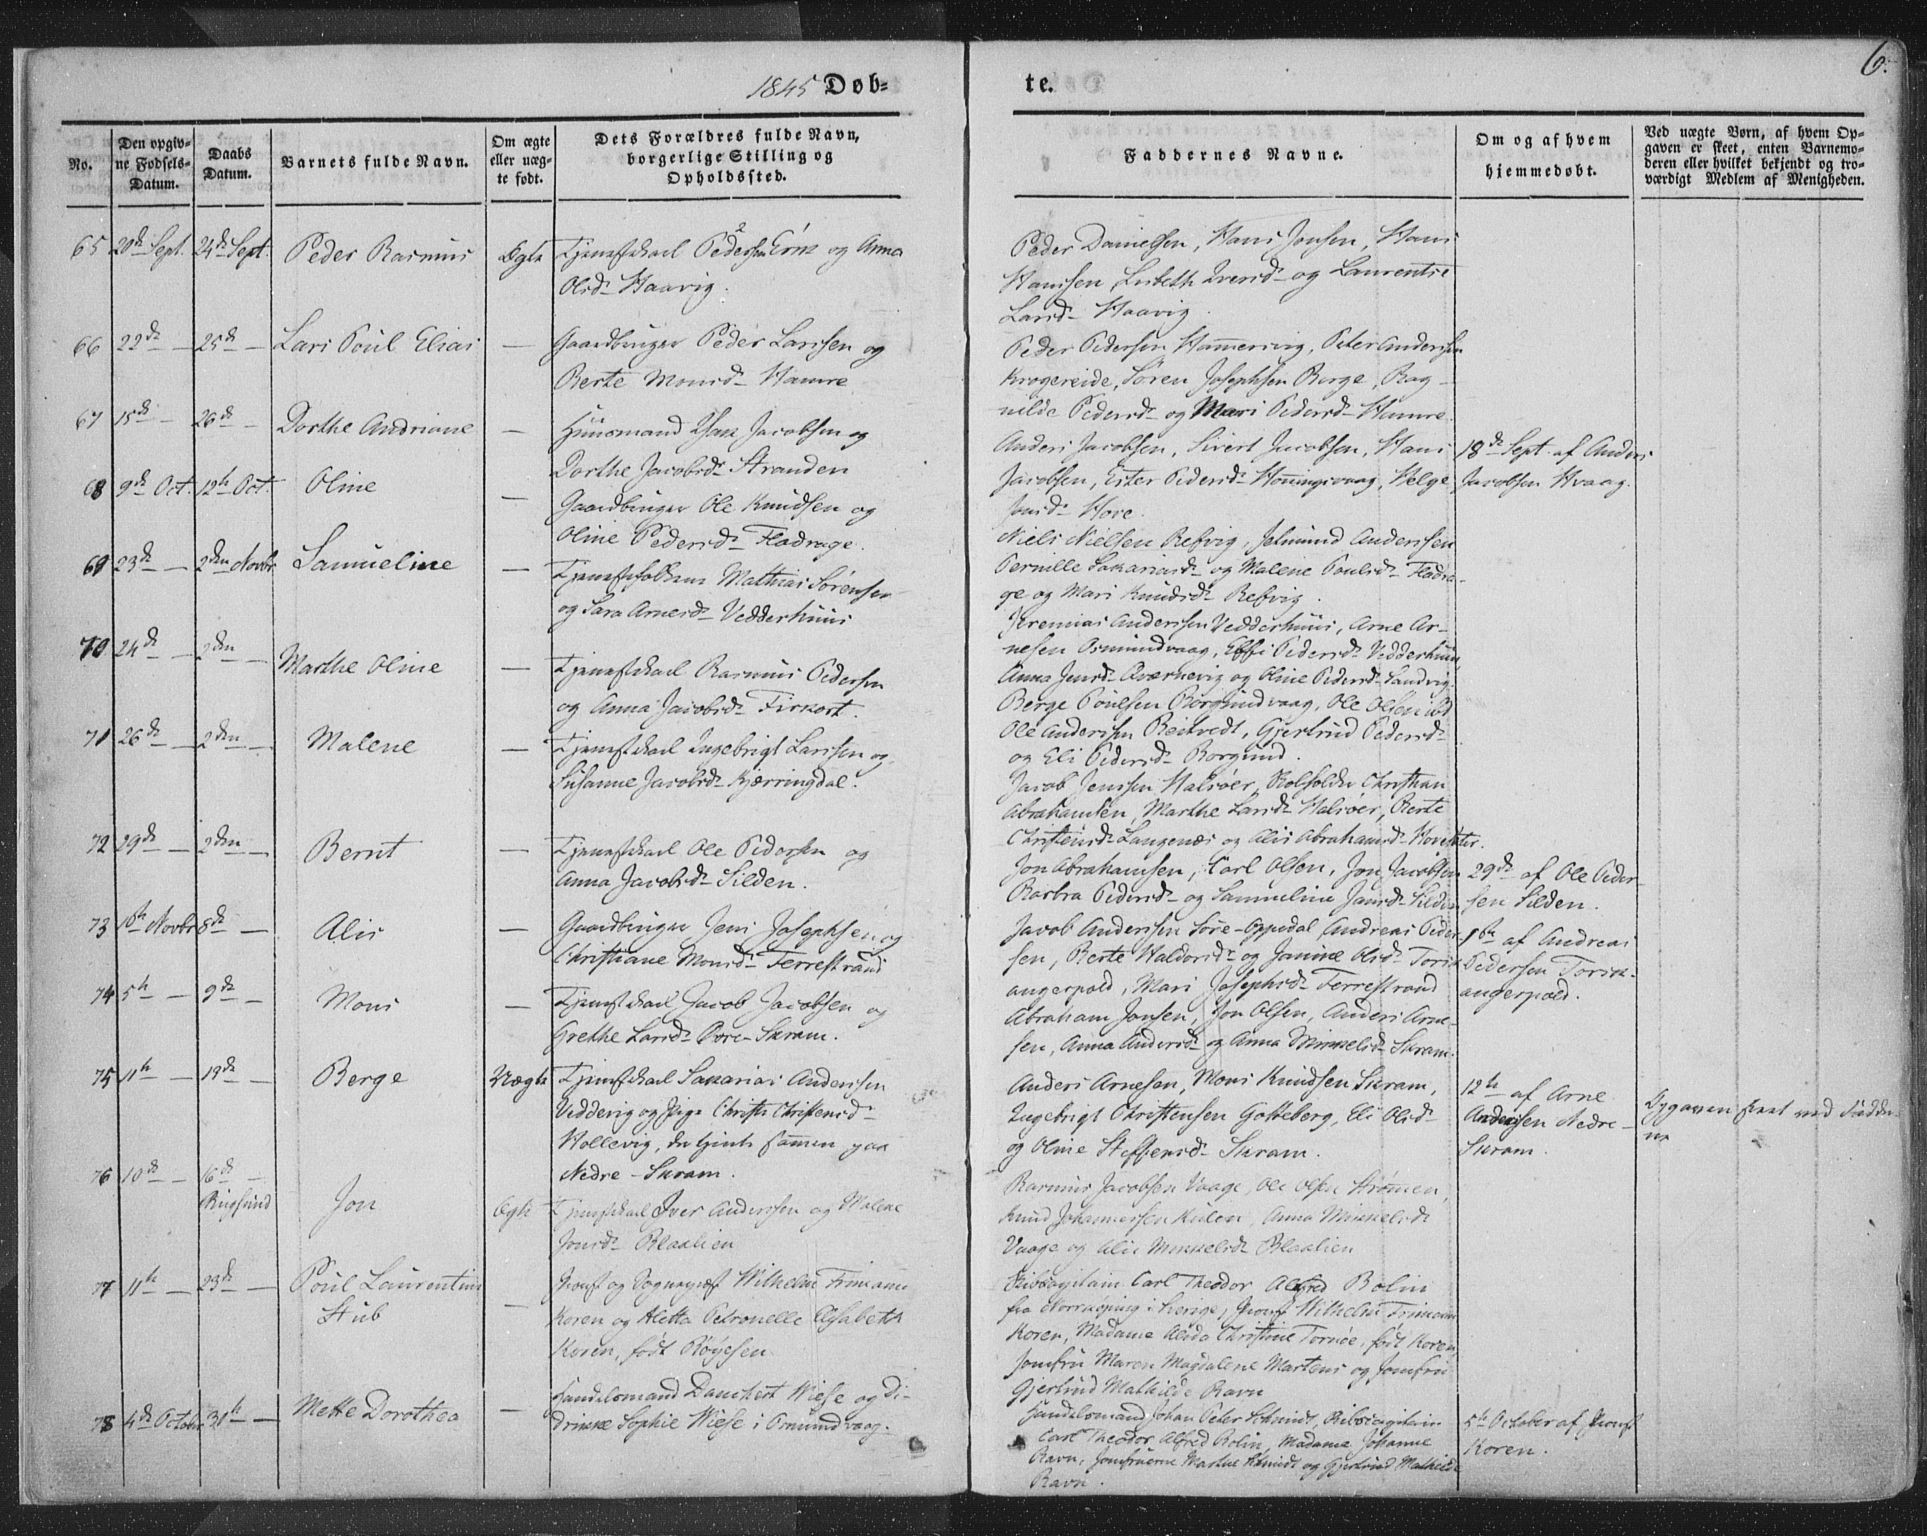 1845 Døb-
te.
6.
No.
Den opgiv-
ne Fødsels-
Datum.
Daabs
Datum.
Barnets fulde Navn.
Om ægte
eller uæg-
te født.
Dets Forældres fulde Navn,
borgerlige Stilling og
Opholdssted.
Faddernes Navne.
Om og af hvem
hjemmedøbt.
Ved uægte Børn, af hvem Op-
gaven er skeet, enten Barnemo-
deren eller hvilket bekjendt og tro-
værdigt Medlem af Menigheden.
65 20de Sept. 24de Sept. Peder Rasmus Ægte Tjenestekarl Peder og Anna
Olsd. Haavig.
Peder Danielsen, Hans Jonsen, Hans
Hanssen, Lisbeth Iversd. og Laurentse
Larsd. Haavig.
66 22de 25de Lars Poul Elias — Gaardbruger Peder Larssen og
Berte Monsd. Hamre
Peder Pedersen Hamersvig, Peter Anderssen
Krogereide, Søren Josephsen Berge, Rag-
nilde Pedersd. og Mari Pedersd. Hamre.
67 15de 26de Dorthe Andriane — Huusmand Jacobsen og
Dorthe Jacobsd. Stranden
Anders Jacobsen, Sivert Jacobsen, Hans
Jacobsen, Ester Pedersd. Honingsvaag, Helge
Jonsd. Hove.
18de Sept. af Anders
Jacobsen Hvaag.
68 9de Oct. 12te Oct. Oline — Gaardbruger Ole Knudsen og
Oline Pedersd. Fladrage.
Niels Nielsen Refvig, Jelmund Anderssen
Pernille Sakariasd. og Malene Poulsd. Fladra-
ge og Mari Knudsd. Refvig.
69 23de 2den Novbr. Samueline — Tjenestefolkene Mathias Sørensen
og Sara Arnesd. Vedderhuus
Jeremias Anderssen Vedderhuus, Arne Ar-
nesen Osmundvaag, Pedersd. Vedderhuus,
Anna Jensd. Qværnevig og Oline Pedersd. Sandvig.
70 24de 2den Marthe Oline — Tjenestekarl Rasmus Pedersen
og Anna Jacobsd.
Berge Poulsen Borgundvaag, Ole Olsen ibd.
Ole Anderssen Reitvedt, Gjertrud Pedersd.
og Eli Pedersd. Borgund.
71 26de 2den Malene — Tjenestekarl Ingebrigt Larssen og
Susanne Jacobsd. Kjærringdal.
Jacob Jenssen Halsøer, Christian
Abrahamsen, Marthe Larsd. Halsøer, Berte
Christensd. Langenæs og Alis Abrahamsd.
72 29de 2den Bernt — Tjenestekarl Ole Pedersen og
Anna Jacobsd. Silden.
Jon Abrahamsen, Carl Olsen, Jon Jacobsen
Barbra Pedersd. og Sammeline Jansd. Silden
29de af Ole Peder-
sen Silden.
73 1ste Novbr. 8de Alis — Gaardbruger Jens Josephsen og
Christiane Monsd. Ferrestrand
Jacob Anderssen Søre-Oppedal, Andreas Peder-
sen, Berte Haldorsd. og Janine Olsd. Torsk-
angerpold, Mari Josephsd. Ferrestrand
1ste af Andreas
Pedersen Torsk-
angerpold.
74 5te 9de Mons — Tjenestekarl Jacob Jacobsen og
Grethe Larsd. Skram.
Abraham Jonsen, Jon Olsen, Anders Arne-
sen, Anna Andersd. og Anna Mikkelsd. Skram.
75 11te 19de Berge Uægte Tjenestekarl Sakarias Anderssen
Veddevig og Pige Christi Christensd.
Hollevig, der tjente sammen paa
Nedre-Skram.
Anders Arnesen, Mons Knudsen Skram,
Ingebrigt Christensen Gotteberg, Eli Olsd.
og Oline Steffensd. Skram.
12te af Arne
Anderssen Nedre-
Skram.
Opgaven skeet ved Fadder-
ne
76 10de 16de Rugsund Jon Ægte Tjenestekarl Iver Anderssen og Malene
Jonsd. Blaalien
Rasmus Jacobsen Vaage, Ole Olsen Strømen,
Knud Johannessen Kulen, Anna Mikkelsd.
Vaage og Alis Mikkelsd. Blaalien
77 11te 23de Poul Laurentius
Stub — Provst og Sognepræst Wilhelm Frimann
Koren og Aletta Petronelle Elisabeth
Koren, født Røyesen
Skibscapitain Carl Theodor Alfred Bolin
fra Norrkøping i Sverige, Provst Wilhelm Frimann
Koren, Madame Alida Christine Tornøe, født Koren,
Jomfru Maren Magdalene Martens og Jomfru
Gjertrud Mathilde Ravn
78 4de October 30te Mette Dorothea — Handelsmand Danchert Wiese og Di-
drikke Sophie Wiese i Osmundvaag.
Handelsmand Johan Peter Schmidt, Skibscapitain
Carl Theodor Alfred Bolin, Madame Johanne
Ravn, Jomfruerne Marthe Schmidt og Gjertrud Mathilde
Ravn.
5te October af Provst
Koren.